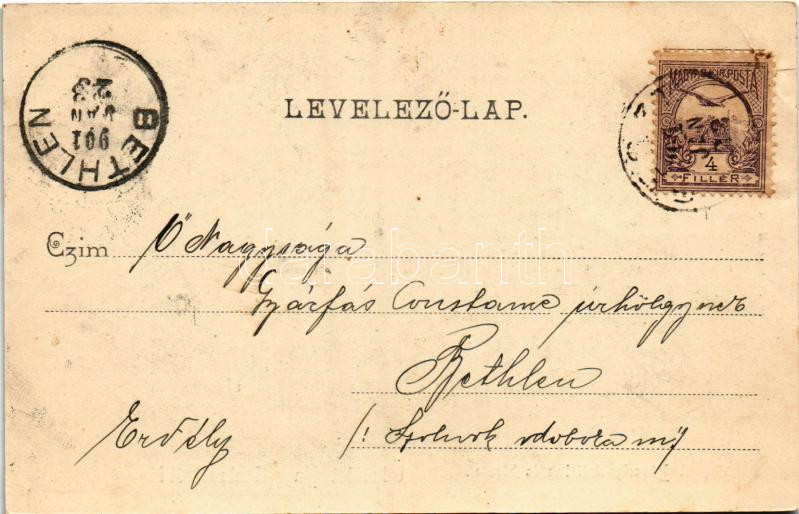 BETHLEN
901
JAN
23
LEVELEZŐ-LAP.
MAGYAR KIR. POSTA
4
FILLÉR
Czim Ő Nagysága
Gyárfás Constance úrhölgynek
Bethlen
Erdély /: Szolnok doboka m:/
darabanth